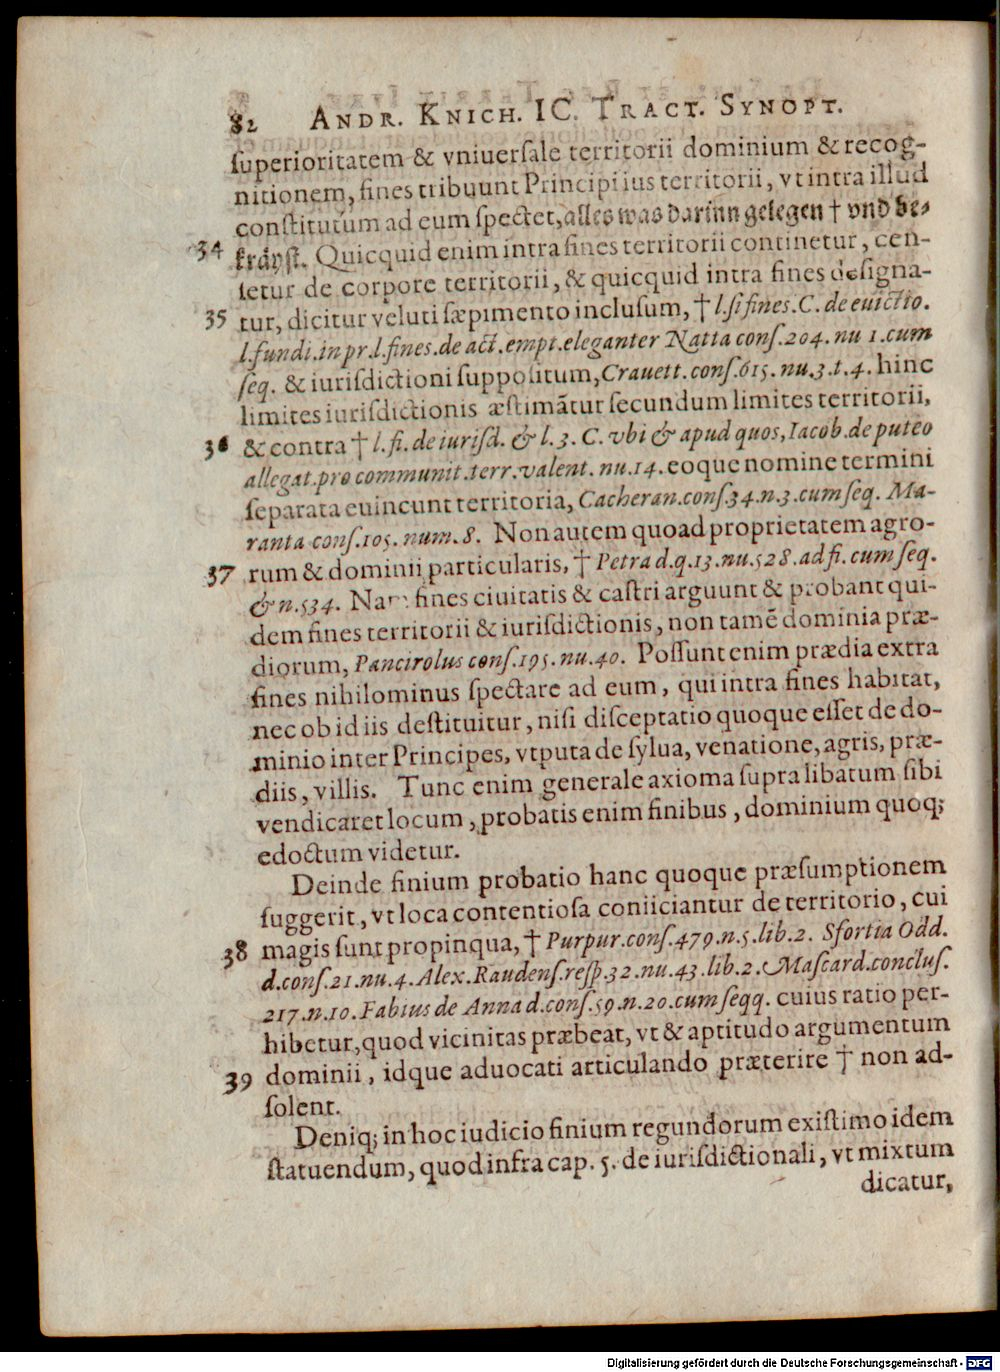 82 ANDR. KNICH. IC. TRACT. SYNOPT.
ſuperioritatem & vniuerſale territorii dominium & recog-
nitionem, fines tribuunt Principi ius territorii, vt intra illud
conſtitutum ad eum ſpectet, alles was darinn gelegen † vnd be-
34 kräyſt. Quicquid enim intra fines territorii continetur, cen-
ſetur de corpore territorii, & quicquid intra fines deſigna-
35 tur, dicitur veluti ſæpimento incluſum, † l. ſi fines. C. de euictio.
l. fundi. in pr. l. fines. de act. empt. eleganter Natta conſ. 204. nu 1. cum
ſeq. & iuriſdictioni ſuppoſitum, Crauett. conſ. 615. nu. 3. t. 4. hinc
limites iuriſdictionis æſtimãtur ſecundum limites territorii,
36 & contra † l. fi. de iuriſd. & l. 3. C. vbi & apud quos, Iacob. de puteo
allegat. pro communit. terr. valent. nu. 14. eoque nomine termini
ſeparata euincunt territoria, Cacheran. conſ. 34. n. 3. cum ſeq. Ma-
ranta conſ. 105. num. 8. Non autem quoad proprietatem agro-
37 rum & dominii particularis, † Petra d. q. 13. nu. 528. ad fi. cum ſeq.
& n. 534. Nam fines ciuitatis & caſtri arguunt & probant qui-
dem fines territorii & iuriſdictionis, non tamẽ dominia præ-
diorum, Pancirolus conſ. 195. nu. 40. Poſſunt enim prædia extra
fines nihilominus ſpectare ad eum, qui intra fines habitat,
nec ob id iis deſtituitur, niſi diſceptatio quoque eſſet de do-
minio inter Principes, vtputa de ſylua, venatione, agris, præ-
diis, villis. Tunc enim generale axioma ſupra libatum ſibi
vendicaret locum, probatis enim finibus, dominium quoq;
edoctum videtur.
Deinde finium probatio hanc quoque præſumptionem
ſuggerit, vt loca contentioſa coniiciantur de territorio, cui
38 magis ſunt propinqua, † Purpur. conſ. 479. n. 5. lib. 2. Sfortia Odd.
d. conſ. 21. nu. 4. Alex. Raudenſ. reſp. 32. nu. 43. lib. 2. Maſcard. concluſ.
217. n. 10. Fabius de Anna d. conſ. 59. n. 20. cum ſeqq. cuius ratio per-
hibetur, quod vicinitas præbeat, vt & aptitudo argumentum
39 dominii, idque aduocati articulando præterire † non ad-
ſolent.
Deniq; in hoc iudicio finium regundorum exiſtimo idem
ſtatuendum, quod infra cap. 5. de iuriſdictionali, vt mixtum
dicatur,
Digitalisierung gefördert durch die Deutsche Forschungsgemeinschaft - DFG